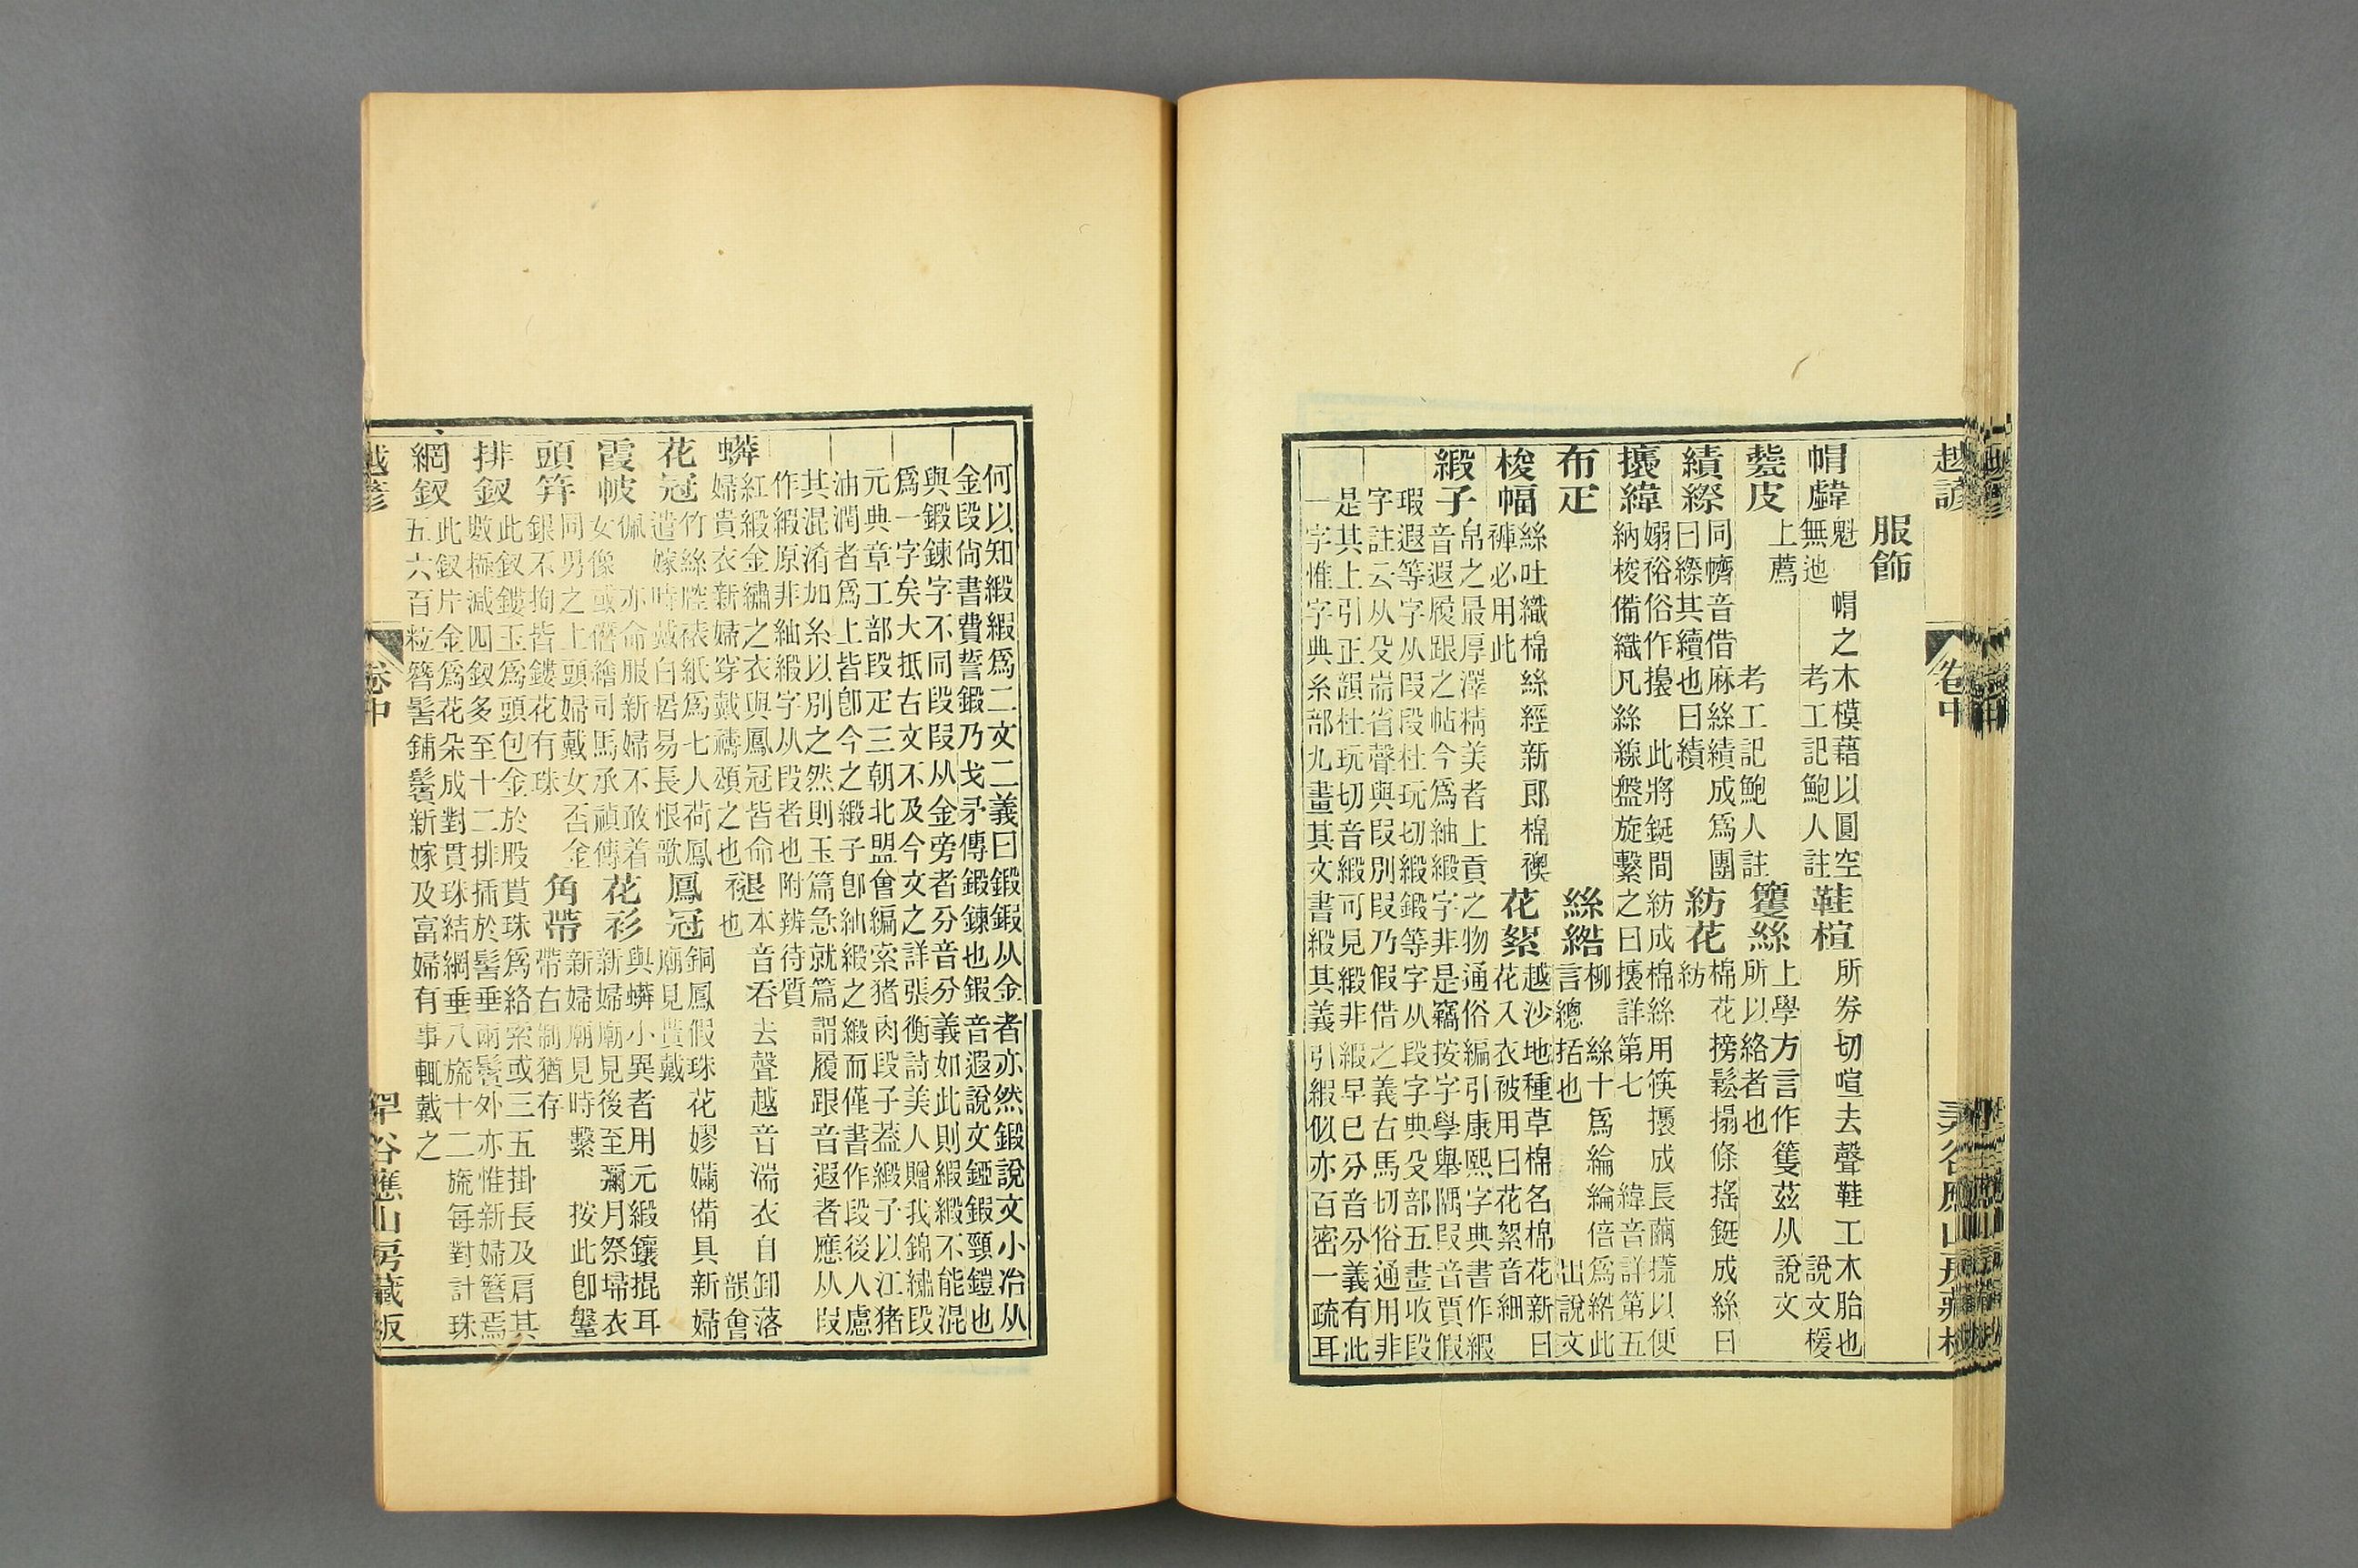 越諺
卷中
服飾
魁 帽之木模藉以圓空
無池 考工記鮑人註
鞋楦 所劵切喧去聲鞋工木胎也
說文楥
皮 上薦
考工記鮑人註
籆絲 上學方言作籰茲从說文
所以絡者也
績縩 同幧音借麻絲績成爲團
曰縩其續也曰績
紡花 棉花搒鬆搨條搖鋌成絲曰
紡
緯 此將鋌間紡成棉絲用筷成長繭以便
納梭備織凡絲線盤旋繫之曰 詳第七 緯音詳第五
布疋
絲綹 柳 絲十爲綸綸倍爲綹此
言總括也 出說文
梭幅 絲吐織棉絲經新郎棉襖
褲必用此
花絮 越沙地種草棉名棉花新曰
花入衣被用曰花絮音細
緞子 帛之最厚澤精美者上貢之物通俗編引康熙字典書作緞
音遐履跟之帖今爲紬緞字非是竊按字學舉隅叚音賈假
瑕遐等字从叚段杜玩切緞鍛等字从段字典殳部五畫收段
字註云从殳耑省聲與叚別叚乃假借之義右馬切俗通用非
是其上引正韻杜玩切音緞可見緞非緞早已分音分義有此
一字惟字典糸部九畫其文書緞其義引緞似亦百密一疏耳
何以知緞緞爲二文二義曰鍛鍜从金者亦然鍛說文小冶从
金段尙書費誓鍛乃戈矛傳鍛鍊也鍜音遐說文錏鍜頸鎧也
與鍛鍊字不同段叚从金旁者分音分義如此則緞緞不能混
爲一字矣大抵右文不及今文之詳張衡詩美人贈我錦繡段
元典章工部段疋三朝北盟會編索猪肉段子葢緞子以江猪
油潤者爲上皆卽今之緞子卽紬緞之緞而僅書作段後人慮
其混淆加糸以別之然則玉篇急就篇謂履跟音遐者應从叚
作緞原非紬緞字从段者也附辨待質
紅緞金繡之衣與鳳冠皆命
婦貴衣新婦穿戴禱頌之也
褪 本音呑去聲越音湍衣自卸落
也 韻會
花冠 竹絲腔裱紙爲七人荷鳳
遣嫁時戴白居易長恨歌
鳳冠 銅鳳假珠花嫪𡡾備具新婦
廟見貰戴
霞帔 佩 亦命服新婦不敢着
女像或僭繪司馬承禎傳
花衫 與蟒小異者用元緞鑲掍耳
新婦廟見後至彌月祭埽衣
頭笄 同男之上頭婦戴女否金
銀不拘皆鏤花有珠
角帶 新婦廟見時繫 按此卽鞶
帶右制猶存
排釵 此釵鏤玉爲頭包金於股貰珠爲絡索或三五掛長及肩其
數極減四釵多至十二排插於髻垂兩鬢外亦惟新婦簪焉
網釵 此釵片金爲花朵成對貫珠結網垂八旒十二旒每對計珠
五六百粒簪髻鋪鬢新嫁及富婦有事輒戴之
越諺
卷中
谷應山房藏板